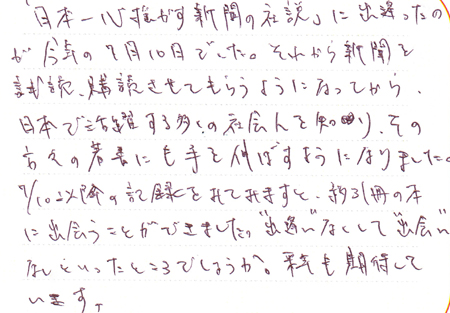 「日本一心揺がす新聞の社説」に出逢ったの
が今年の7月10日でした。それから新聞を
試読、購読させてもらうようになってから、
日本で活躍する多くの社会人を知り、その
方々の著書にも手を伸ばすようになりました。
7/10以降の記録を見てみますと、約31冊の本
に出会うことができました。"出逢い"なくして"出会い"
なしといったところでしょうか。来年も期待して
います。